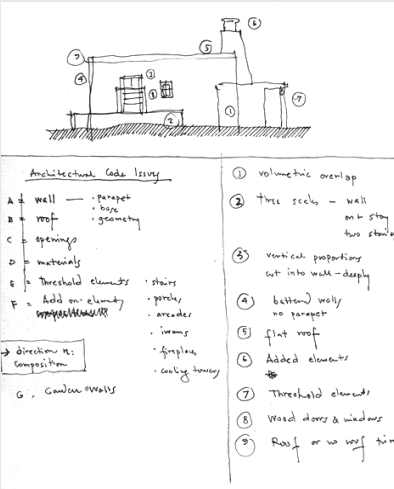 6
5
3
4
3
8
2
1
7
Architectural Code Issues
A = wall — · parapet
· base
B = roof · geometry
C = openings
D = materials
E = Threshold elements · stairs
F = Add on elements · porches
· arcades
· fireplaces
· cooling towers
→ direction re:
composition
G. Garden walls
① volumetric overlap
② three scales – wall
one story
two stories
③ vertical proportions
cut into wall – deeply
④ battered walls
no parapet
⑤ flat roof
⑥ Added elements
⑦ Threshold elements
⑧ Wood doors & windows
⑨ Roof or no roof trim